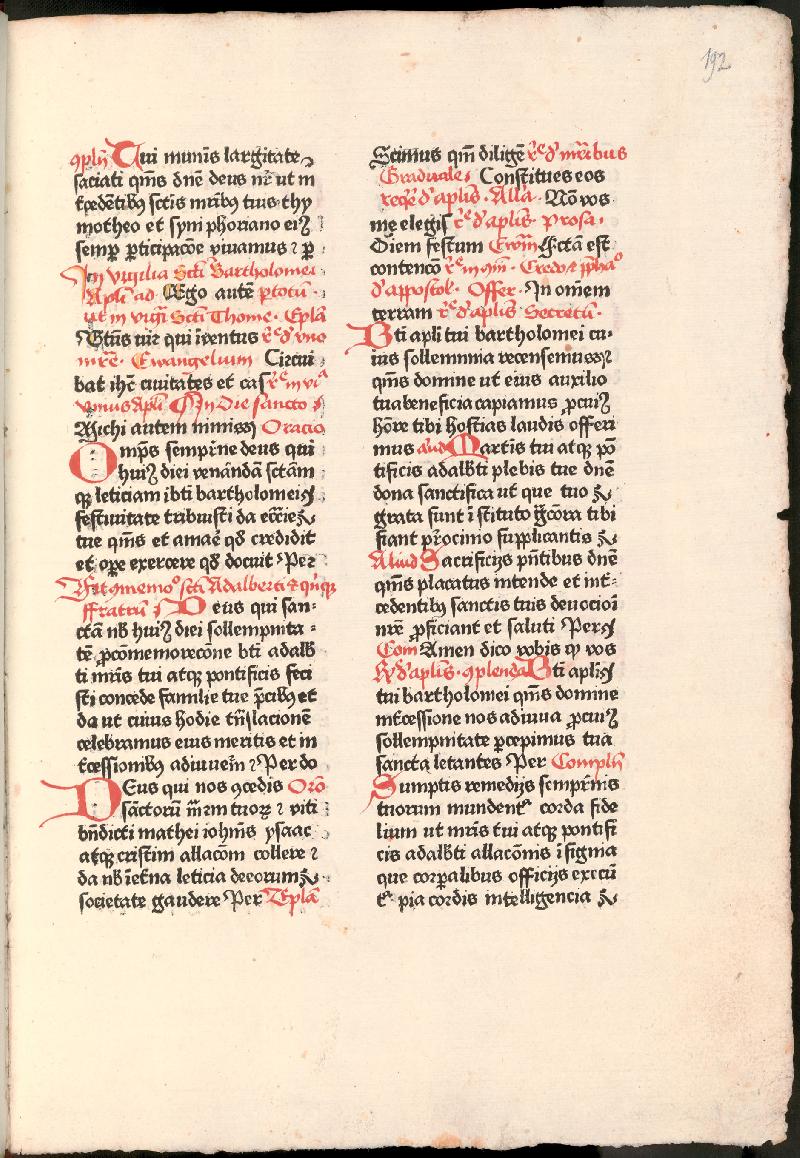 192
ꝯplñ Tui muni̅s largitate
saciati qm̃s dne̅ deus nr̃ ut in
t̾cedētibꝫ sctis mr̃ibꝫ tuis thy
motheo et symphoriano eiꝰ
semꝑ ꝑticipacōe viuamus ꝑ
In vigilia Scti̅ Bartholomei
Apl̃i ad Ego aute̅ ꝑtotu̅
ut in vigi̅ Scti̅ Thome. Epl̃a
uir qui inuentus
Ewangelium Circui
bat ihc̅ ciuitates et cas
In Die sancto
Michi autem nimis Oracio
Omp̅s semp̅rne deus qui
huiꝰ diei venāndā sctām
qꝫ leticiam ībti bartholomei
festiuitate tribuisti da ecc̅ie
tue qm̃s et amar̅e qd̛ credidit
et oꝑe exercere qd̛ docuit Per
Fit ꝯmemo̊ scti̅ Adalberti ⁊ qui̅qꝫ
ffratru̅ Deus qui san
ctā nb̅ huiꝰ diei sollempnita
te̅ ꝓcōmemorecōne bt̅i adalb̅
ti mr̃is tui atqꝫ pontificis feci
sti concede familie tue p̅cibꝫ et
da ut cuius hodie tn̅slacionē
celebramus eius meritis et in
t̾cessionibꝫ adiuuem̃ Per do
DEus qui nos ꝯcedis Oro̅
sa̅ctorū mr̅m tuorꝝ viti
bn̅dicti mathei ioh̅nis ysaac
atqꝫ cristi̅m allacōm collere
da nb̅ iet̾na leticia deeorum
societate gaudere Per Epla̅
Scimus qm̅ dilige̅ re̊ d' mr̃ibus
Graduale Constitues eos
req̾re d' apl̃is. Alla. Nō vos
me elegis re̊ d' apl̃is prosa.
Diem festum Ewm̅ Fcta̅ est
contencō re̊ in qm̅. Credo ꝓpha̅o
d' appostol̃. Offer. In om̅em
terram re̊ d' apl̃is Secretu̅.
Bti apl̃i tui bartholomei cu
ius sollemnnia recensemus
qm̃s domine ut eius auxilio
tua beneficia capiamus ꝓ cuiꝰ
ho̅re tibi hostias laudis offeri
mus aliud Martis tui atqꝫ po̅
tificis adalb̅ti plebis tue dne̅
dona sanctifica ut que tuo
grata sunt ĩstituto gc̅ora tibi
fiant pr̅ocinio supplicantis
Aliud Sacrificijs pn̅tibus dne̅
qm̃s placatus intende et int̾
cedentibꝫ sanctis tuis deuocioī
nr̅e ꝓficiant et saluti Per
Com Amen dico vobis qꝫ vos
re̊ d' apl̃is. ꝯplenda Bti apl̃i
tui bartholomei qm̃s domine
int̾cessione nos adiuua ꝓ cuiꝰ
sollempnitate ꝑcepimus tua
sancta letantes Per Complñ
Sumptis remedijs semp̅rnis
tuorum mundent̾ corda fide
lium ut mr̃is tui atqꝫ pontifi
cis adalb̅ti allacōnis ĩsigma
que corꝑalibus officijs execū
t̾ pia cordis intelligencia